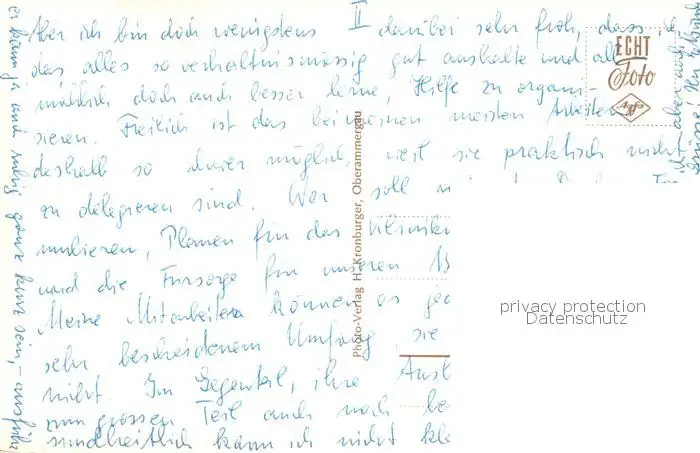 II
Aber ich bin doch wenigstens darüber sehr froh, dass ich
das alles so verhältnismässig gut aushalte und all-
mählich doch auch besser lerne, Hilfe zu organi-
sieren. Freilich ist das bei meinen meisten Arbeiten
deshalb so schwer möglich, weil sie praktisch nicht
zu delegieren sind. Wer soll
mulieren, Planen für das
und die Fürsorge für unseren
Meine Mitarbeiter können es
sehr bescheidenem Umfang, sie
nicht. Im Gegenteil, ihre
zum grossen Teil auch noch
sundheitlich kann ich nicht
er kann ja auch ruhig ganz kurz sein, –
ECHT
Foto
Agfa
Photo-Verlag H. Kronburger, Oberammergau
privacy protection
Datenschutz